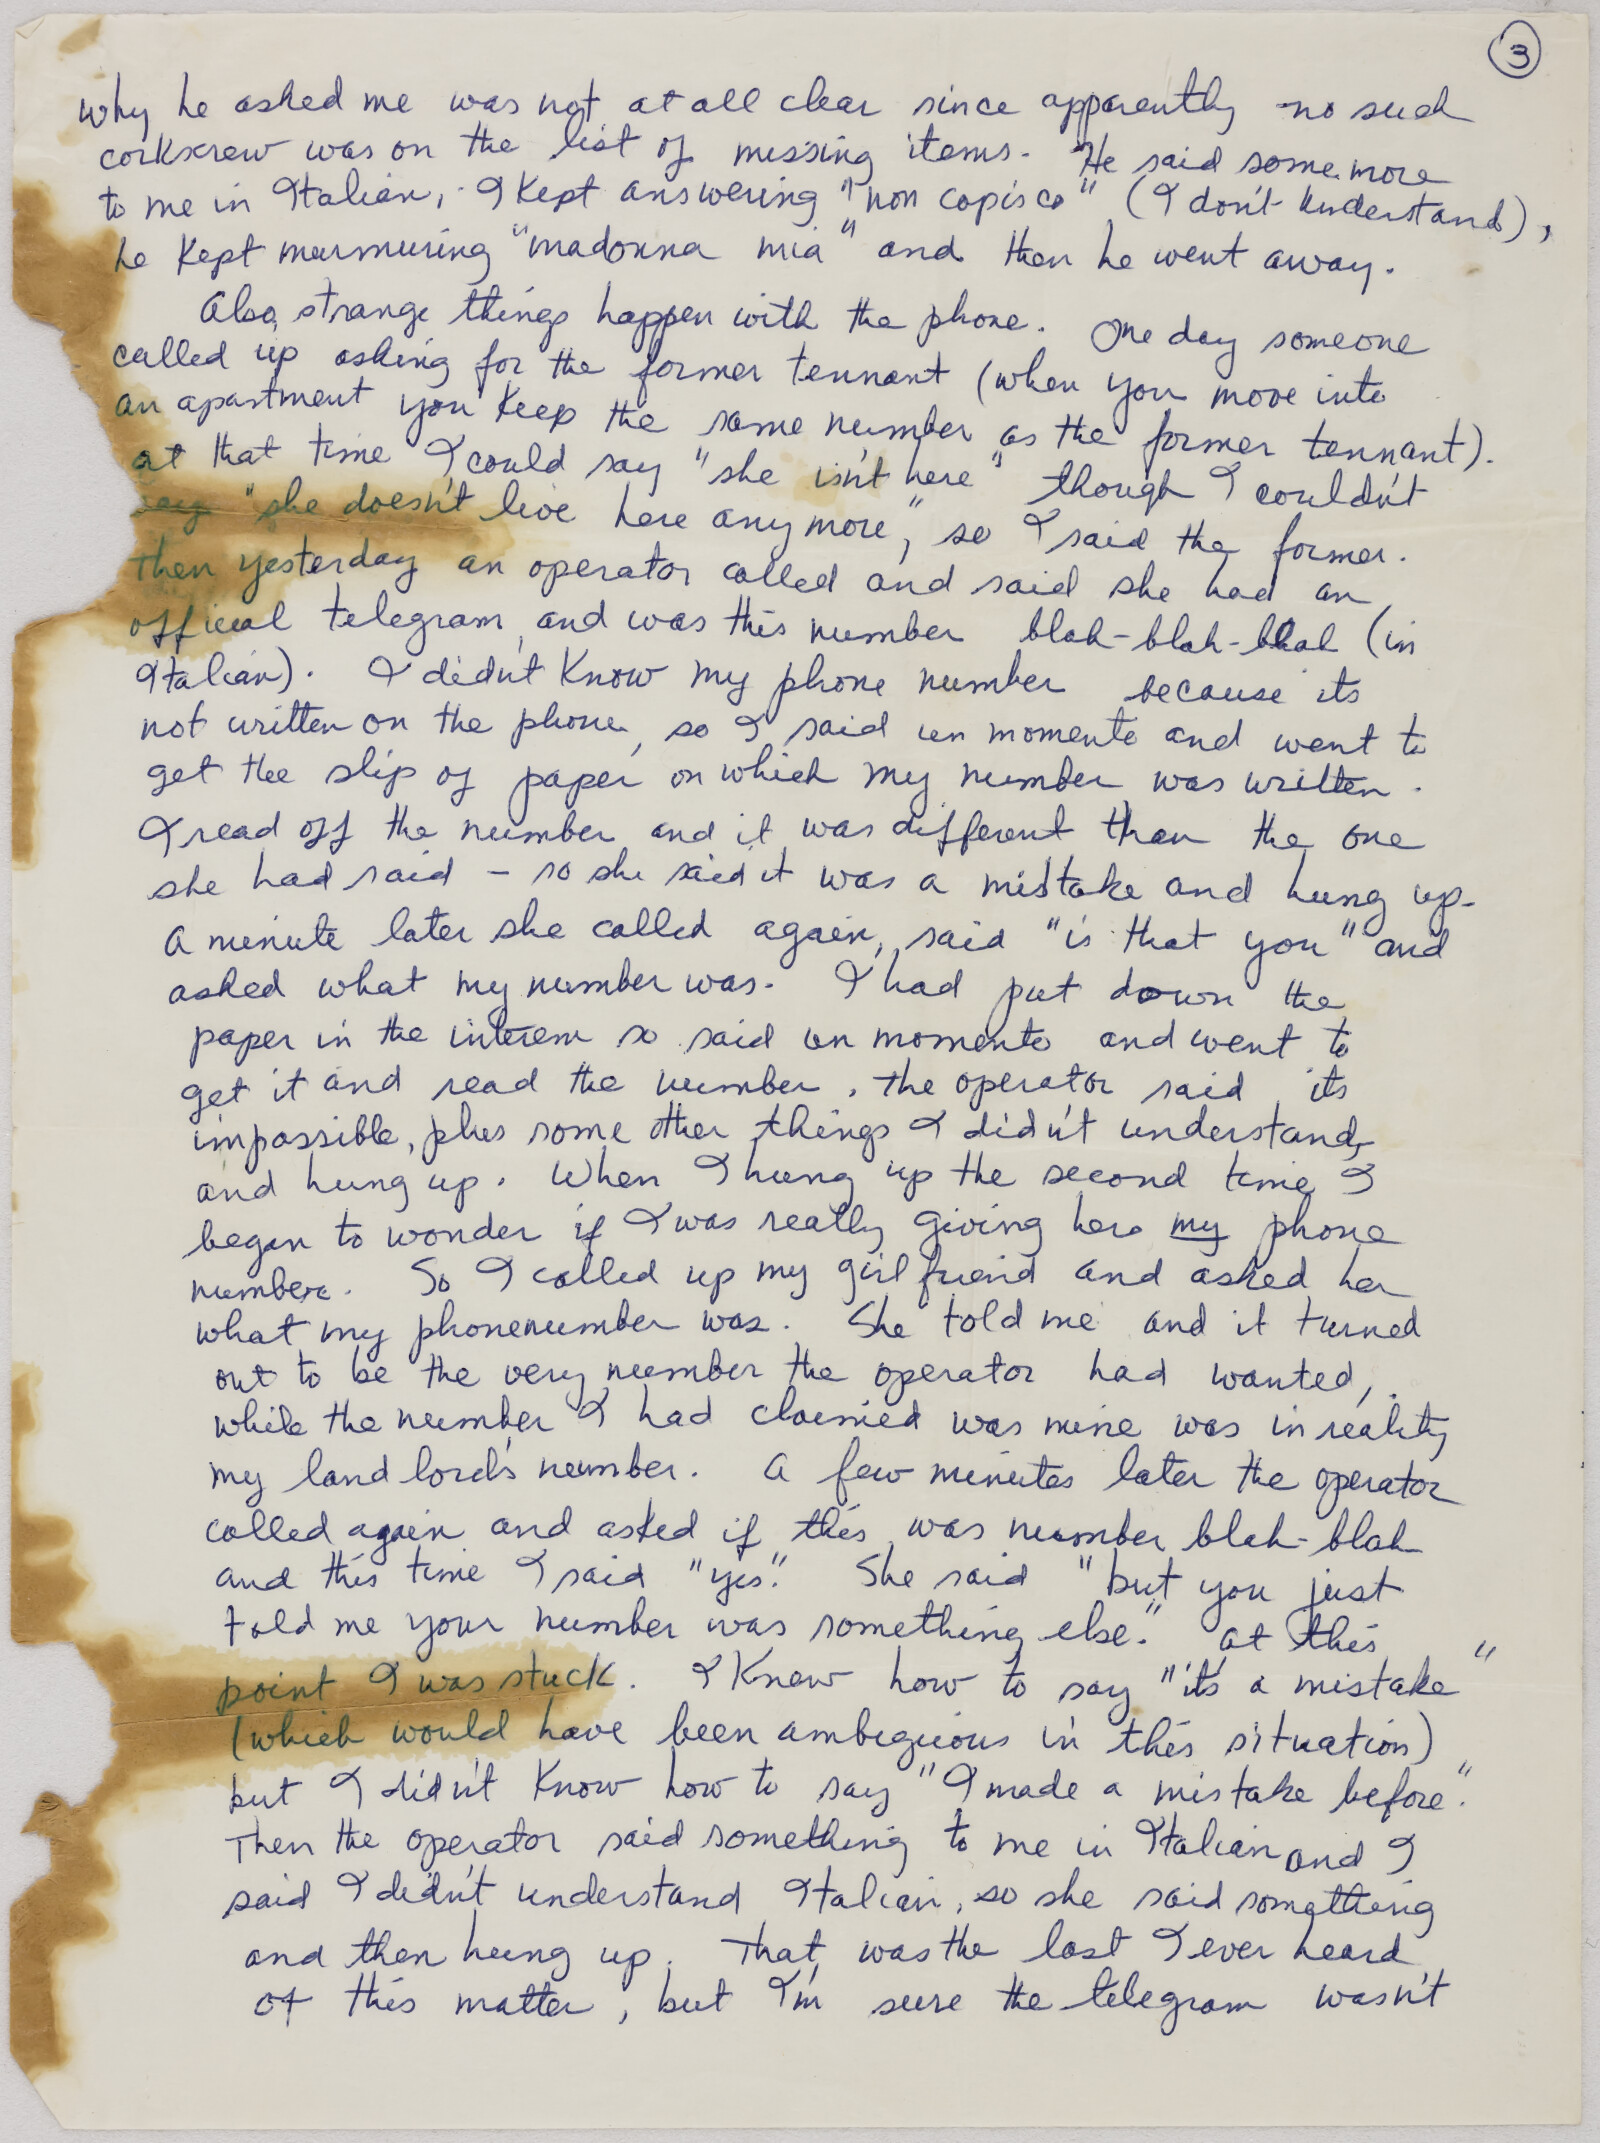 3
why he asked me was not at all clear since apparently no such
corkscrew was on the list of missing items. He said some more
to me in Italian, I kept answering "non copisco" (I don't understand),
he kept murmuring "madonna mia" and then he went away.
Also, strange things happen with the phone. One day someone
called up asking for the former tennant (when you move into
an apartment you keep the same number as the former tennant).
at that time I could say "she isn't here" though I couldn't
say "she doesn't live here any more", so I said the former.
Then yesterday an operator called and said she had an
offical telegram and was this number blah-blah-blah (in
Italian). I didn't know my phone number because its
not written on the phone, so I said un momento and went to
get the slip of paper on which my number was written.
I read off the number and it was different than the one
she had said - so she said it was a mistake and hung up.
A minute later she called again, said "is that you" and
asked what my number was. I had put down the
paper in the interem so said un momento and went to
get it and read the number. The operator said its
impossible, plus some other things I didn't understand,
and hung up. When I hung up the second time I
began to wonder if I was really giving her my phone
number. So I called up my girlfriend and asked her
what my phonenumber was. She told me and it turned
out to be the very number the operator had wanted,
while the number I had claimed was mine was in reality
my landlord's number. A few minutes later the operator
called again and asked if this was number blah-blah
and this time I said "yes." She said "but you just
told me your number was something else." at this
point I was stuck. I knew how to say "it's a mistake"
(which would have been ambiguous in this situation)
but I didn't know how to say "I made a mistake before."
Then the operator said something to me in Italian and I
said I didn't understand Italian, so she said something
and then hung up. That was the last I ever heard
of this matter, but I'm sure the telegram wasn't